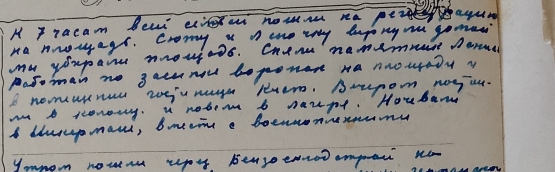 К 7 часам всей семьей пошли на регистрацию
на площадь. Сюту и Леночку вернули домой
мы убирали площадь. Сняли памятник Ленина
Работал по засыпке воронок на площади и
в помещении гостиницы Кист. Вечером постави-
ли в колону и повели в лагерь. Ночевали
в Инкермане, вместе с военнопленными
Утром пошли через Бензоскладстрой на